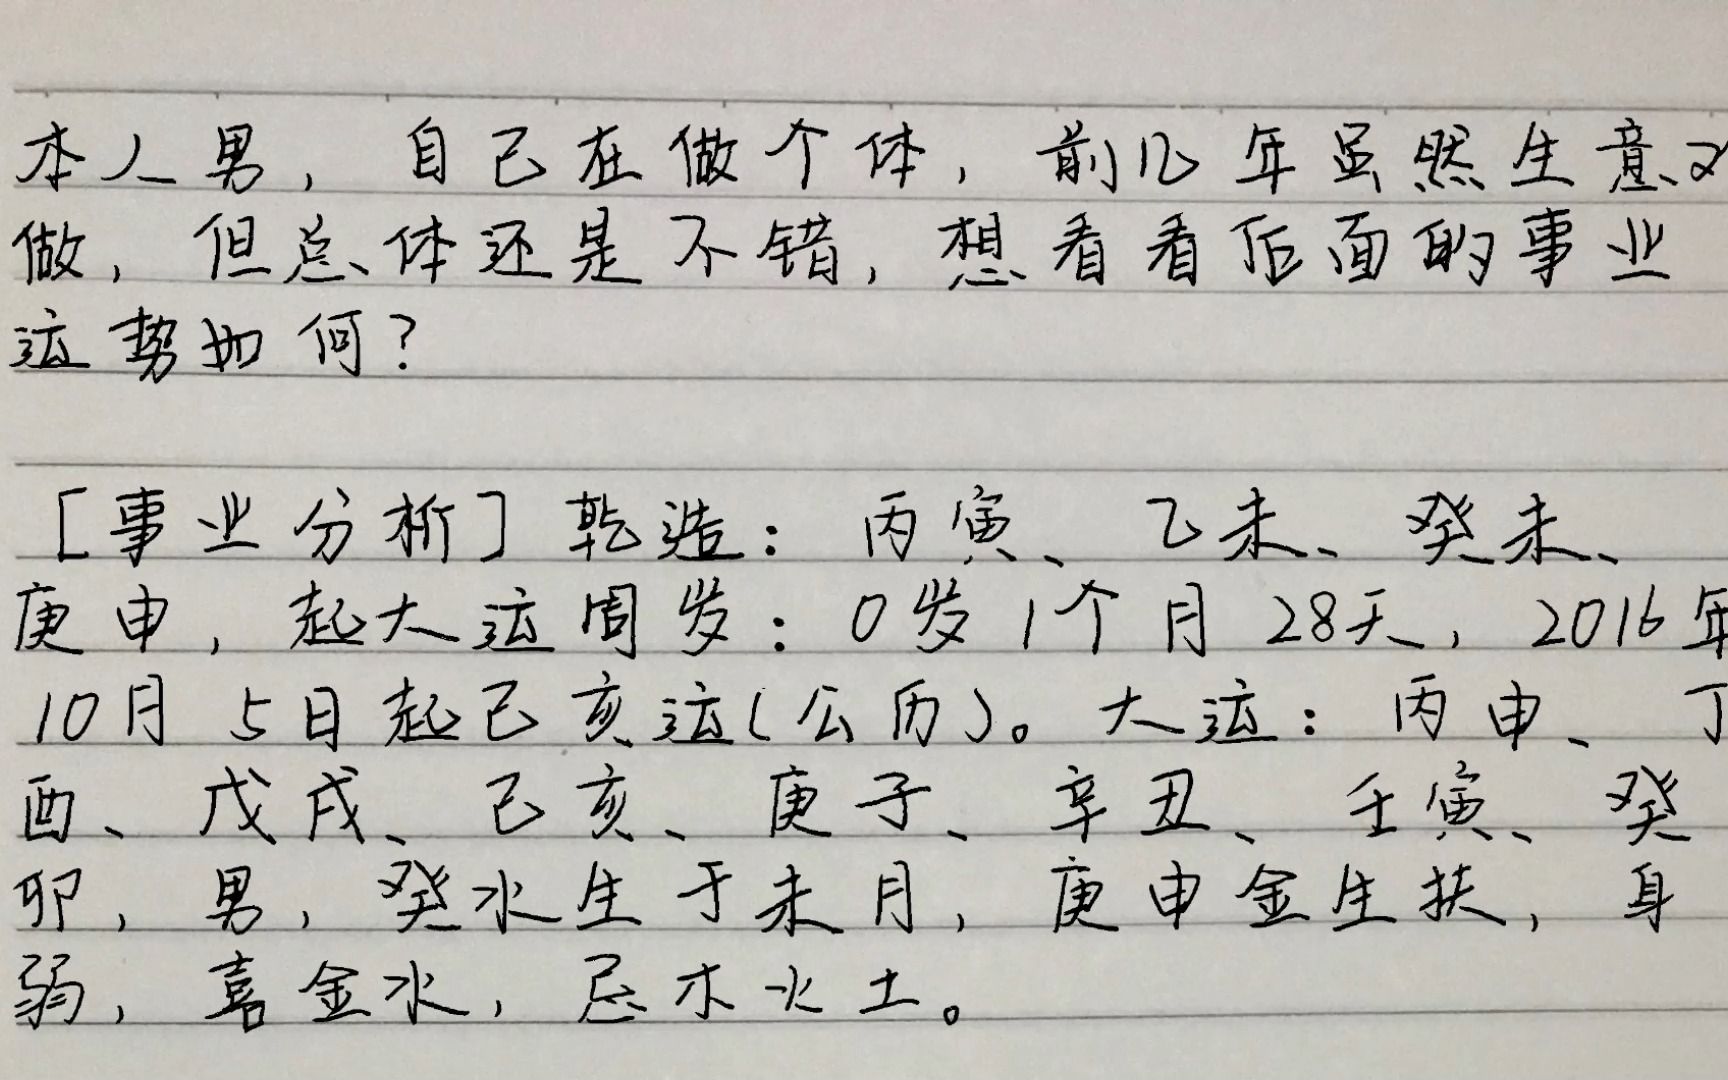 本人男，自己在做个体，前几年虽然生意
做，但总体还是不错，想看看后面的事业
运势如何？
[事业分析]乾造：丙寅、乙未、癸未、
庚申，起大运周岁：0岁1个月28天，2016年
10月5日起己亥运(公历)。大运：丙申、丁
酉、戊戌、己亥、庚子、辛丑、壬寅、癸
卯，男，癸水生于未月，庚申金生扶，身
弱，喜金水，忌木火土。